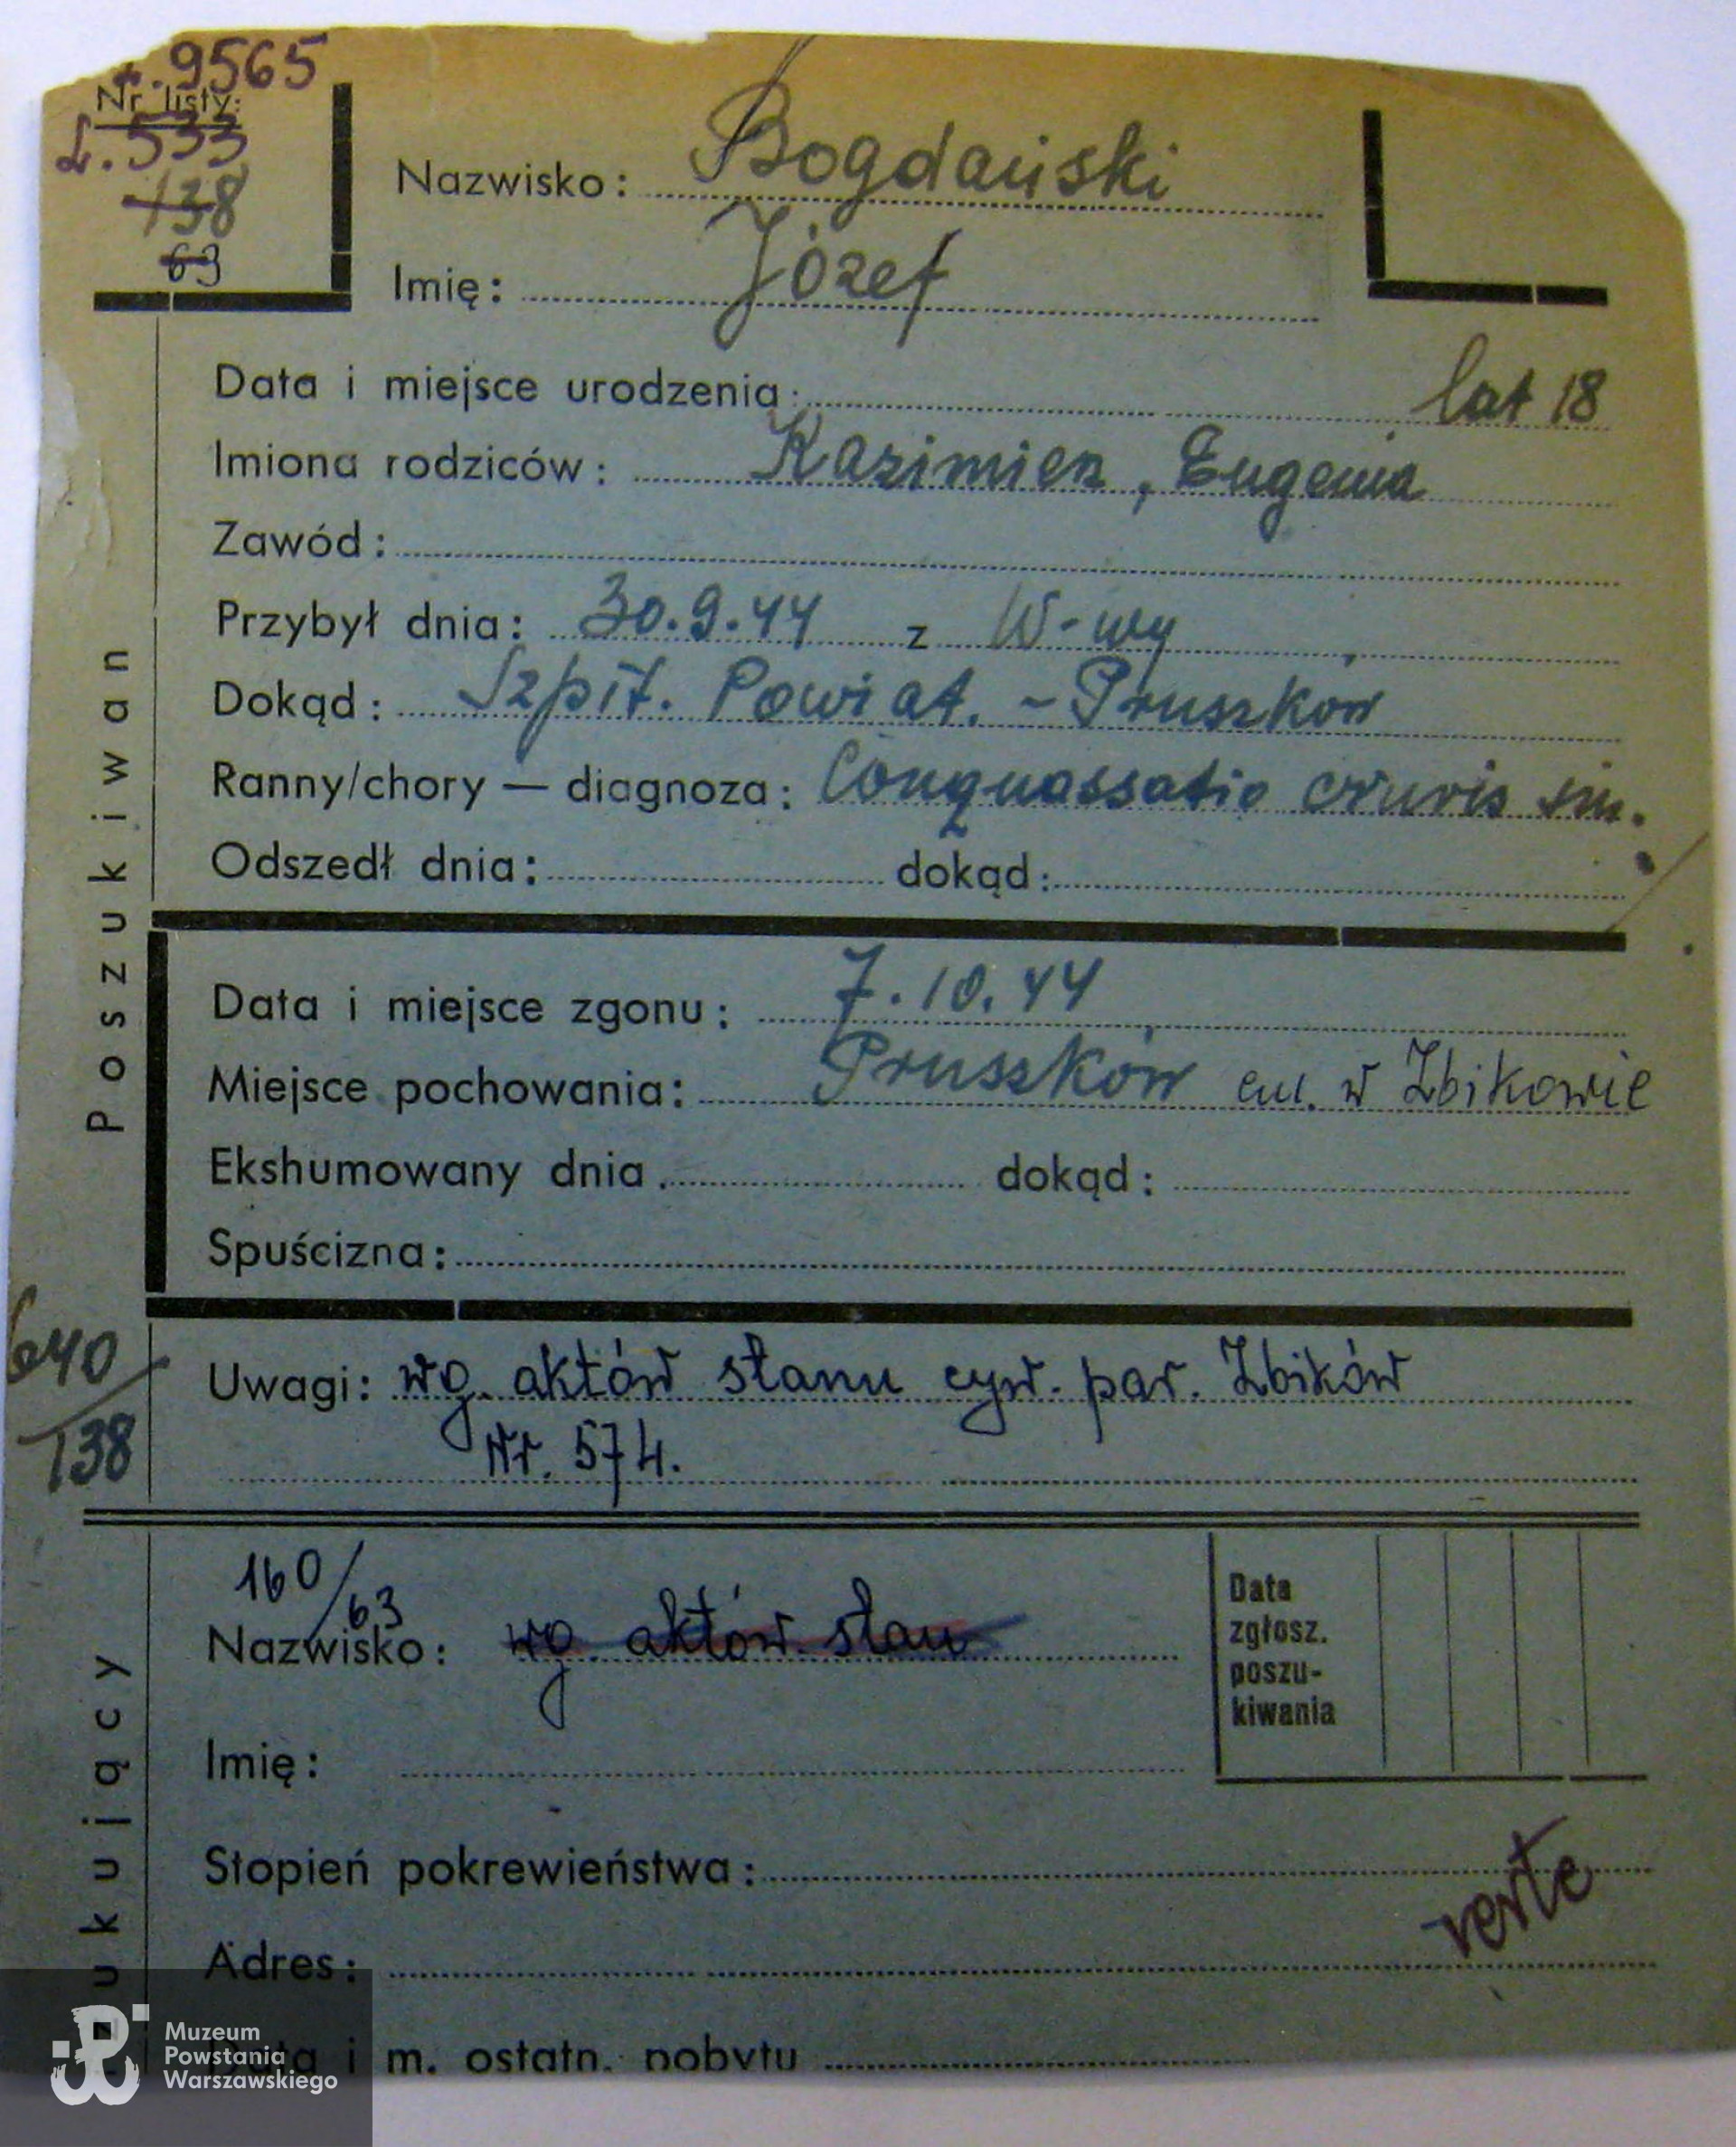 r. 9565
Nr listy:
L. 533
138
63
Nazwisko: Bogdański
Imię: Józef
Data i miejsce urodzenia: lat 18
Imiona rodziców: Kazimierz, Eugenia
Zawód:
Przybył dnia: 30.9.44 z W-wy
Dokąd: Szpit. Powiat. - Pruszków
Ranny/chory — diagnoza: Conquassatio cruris sin.
Odszedł dnia: dokąd:
Poszukiwan
Data i miejsce zgonu: 7.10.44
Miejsce pochowania: Pruszków cm. w Żbikowie
Ekshumowany dnia dokąd:
Spuścizna:
640/138
Uwagi: wg. aktów stanu cyw. par. Żbików
Nr. 574.
160/63
Nazwisko: wg. aktów stan
Data
zgłosz.
poszu-
kiwania
Imię:
Stopień pokrewieństwa:
verte
Adres:
ukujący
Data i m. ostatn. pobytu
Muzeum
Powstania
Warszawskiego